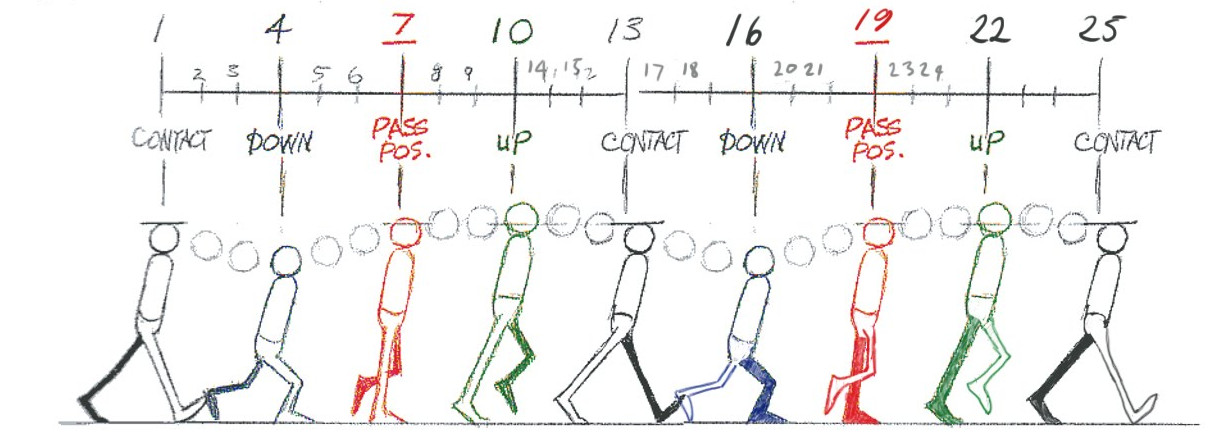 1 4 7 10 13 16 19 22 25
2 3 5 6 8 9 14 15 2 17 18 20 21 23 24
CONTACT DOWN PASS POS. UP CONTACT DOWN PASS POS. UP CONTACT